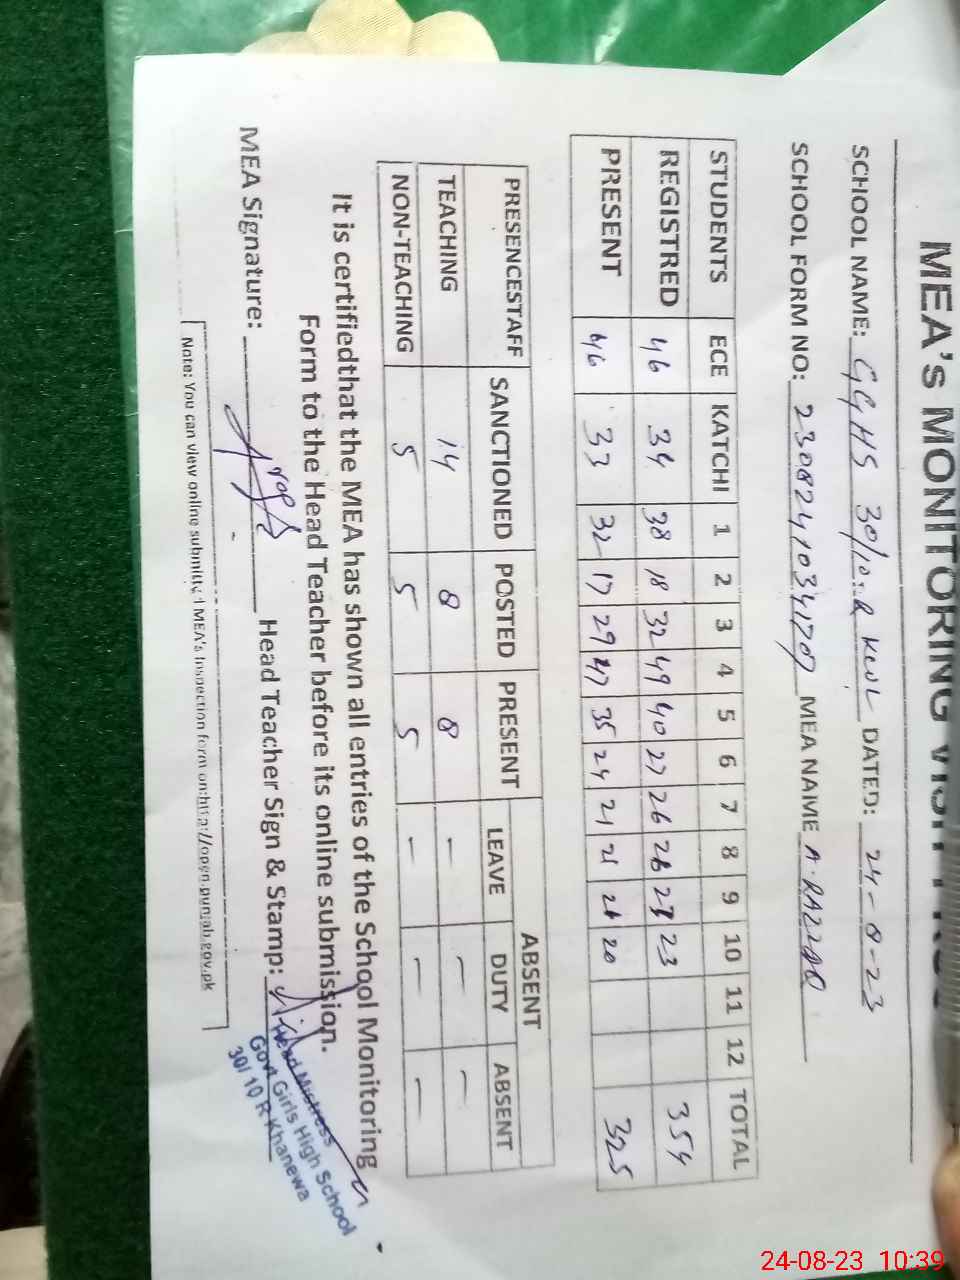 MEA's MONITORING
SCHOOL NAME: GGHS 30/10.R KWL DATED: 24-8-23
SCHOOL FORM NO: MEA NAME A.RAZZAQ
STUDENTS ECE KATCHI 1 2 3 4 5 6 7 8 9 10 11 12 TOTAL
REGISTRED 46 34 38 18 32 49 40 27 26 23 354
PRESENT 46 33 32 17 29 47 35 24 21 21 20 325
PRESENCESTAFF SANCTIONED POSTED PRESENT ABSENT
LEAVE DUTY ABSENT
TEACHING 14 8 8 — — —
NON-TEACHING 5 5 5 — — —
It is certifiedthat the MEA has shown all entries of the School Monitoring
Form to the Head Teacher before its online submission.
MEA Signature: Head Teacher Sign & Stamp:
Head Mistress
Govt Girls High School
30/10 R Khanewa
Note: You can view online submitted MEA's Inspection form on:http://open.punjab.gov.pk
24-08-23 10:39